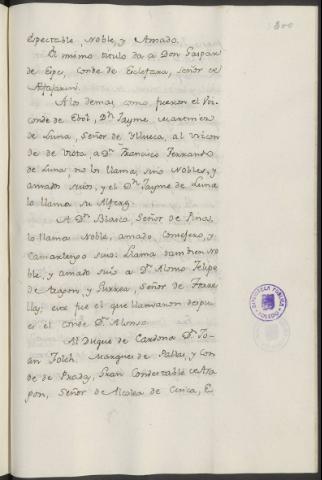 800
espectable, Noble, y Amado.
El mismo titulo da a Don Gaspar
de Espes, Conde de Esclafana, Señor de
Alfajarin.
A los demas, como fueron el Viz-
conde de Ebol, Dn. Jayme Martinez
de Luna, Señor de Yllueca, al Vizcon
de de Viota, a Dn. Francisco Ferrando
de Luna, no los llama, sino Nobles, y
amados suios, y el Dn. Jayme de Luna
lo llama su Alferez.
A Dn. Blasco, Señor de Pinas
lo llama Noble, amado, Consejero, y
Camarlengo suio: Llama tambien No
ble, y amado suio a Dn. Alonso Felipe
de Aragon, y Gurrea, Señor de
este fue el que llamaron despu
es el conde Dn. Alonso.
Al Duque de Cardona Dn. Jo-
an Folch, Marques de Pallas, y Con
de de Prades, Gran Condestable de Ara
gon, Señor de Alcolea de Cinca, E
BIBLIOTECA PUBLICA
TOLEDO